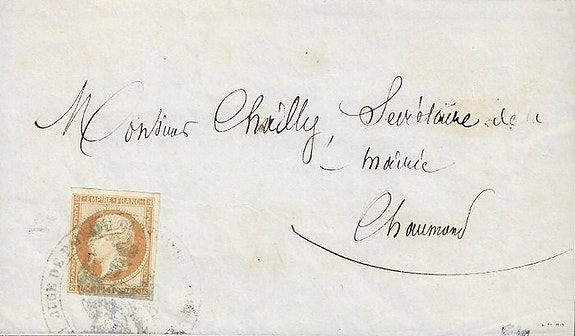 Monsieur Chailly, Secrétaire de la
mairie
Chaumond
EMPIRE FRANC